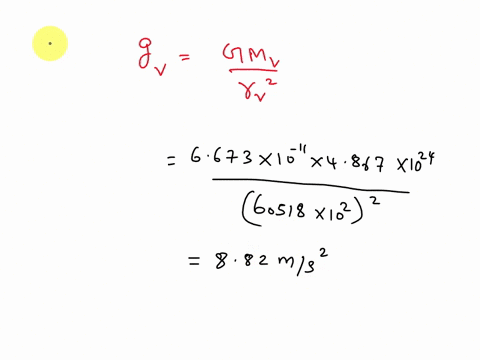 g_v = GM_v / r_v²
= 6.673 × 10⁻¹¹ × 4.867 × 10²⁴ / (60518 × 10²)²
= 8.82 m/s²